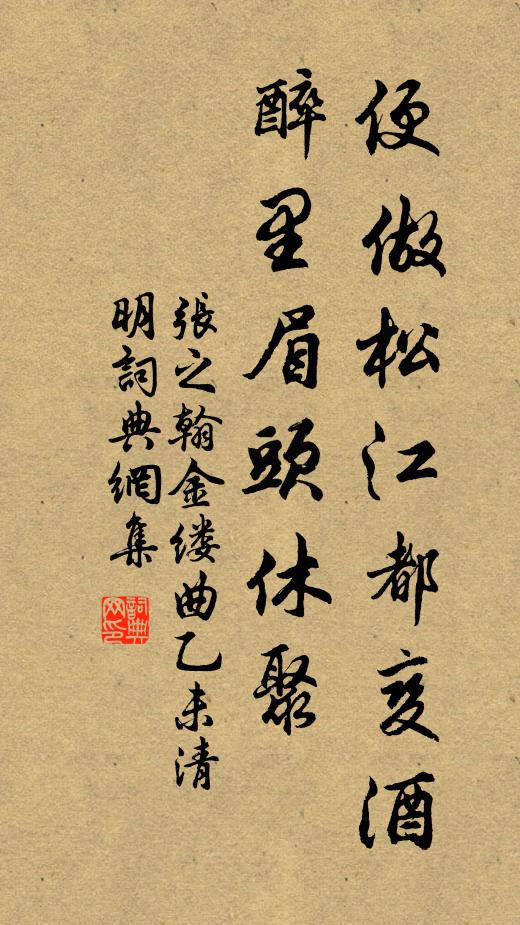 便做松江都变酒
醉里眉頭休聚
張之翰金缕曲乙未清
明詞典網集
詞典
网印